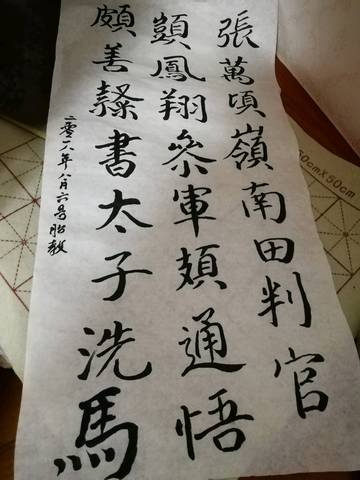 張萬頃嶺南田判官
顗鳳翔叅軍頍通悟
頗善隸書太子洗馬
二零一八年八月六号胎教
50cmX50cm